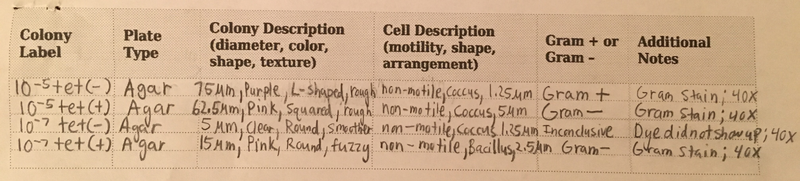 Colony Label Plate Type Colony Description (diameter, color, shape, texture) Cell Description (motility, shape, arrangement) Gram + or Gram - Additional Notes
10⁻⁵ tet(-) Agar 75μm, Purple, L-shaped, rough non-motile, Coccus, 1.25μm Gram + Gram Stain; 40X
10⁻⁵ tet(+) Agar 62.5μm, Pink, Squared, rough non-motile, Coccus, 5μm Gram- Gram Stain; 40X
10⁻⁷ tet(-) Agar 5μm, Clear, Round, Smoother non-motile, Coccus 1.25μm Inconclusive Dye did not show up; 40X
10⁻⁷ tet(+) Agar 15μm, Pink, Round, fuzzy non-motile, Bacillus, 2.5μm Gram- Gram Stain; 40X